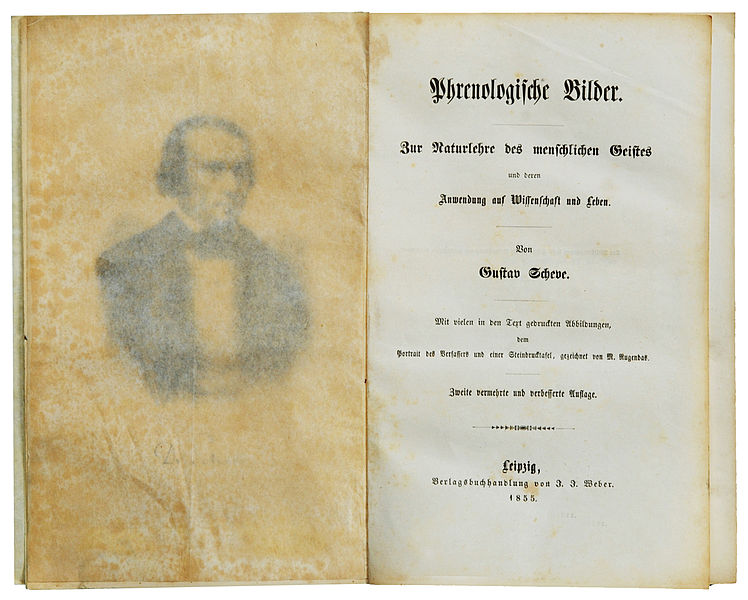 Phrenologische Bilder.
Zur Naturlehre des menschlichen Geistes
und deren
Anwendung auf Wissenschaft und Leben.
Von
Gustav Scheve.
Mit vielen in den Text gedruckten Abbildungen,
dem
Portrait des Verfassers und einer Steindrucktafel, gezeichnet von M. Rugendas.
Zweite vermehrte und verbesserte Auflage.
Leipzig,
Verlagsbuchhandlung von J. J. Weber.
1855.